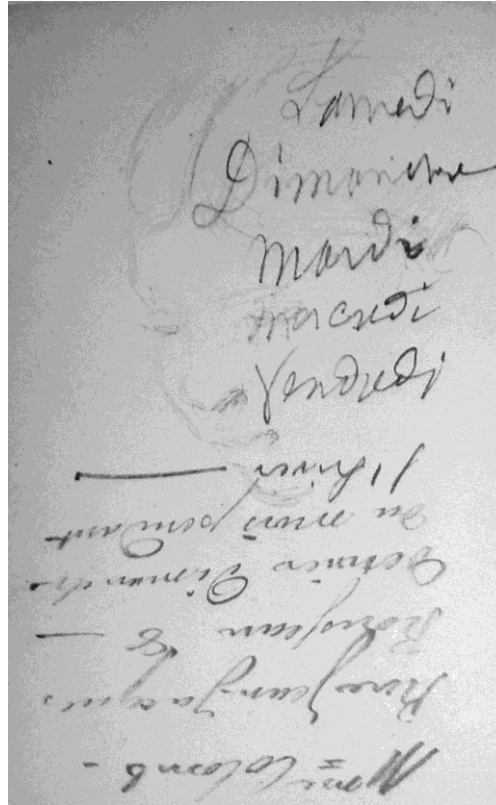 Samedi
Dimanche
Mardi
mercredi
Vendredi
Mme Colomb -
Rue Jean-Jacques
Rousseau 8 —
Dernier Dimanche
du mois pendant
l'hiver —